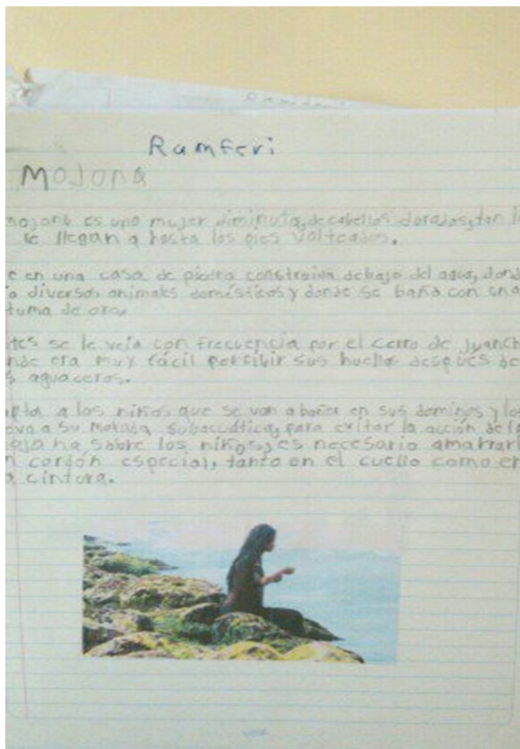 Ramferi
MOJONA
mojona es uno mujer diminuta, de cabellos dorados, tan l
se llegan a hasta los pies volteados.
e en una casa de piedra construida debajo del agua, dond
a diversos animales domésticos y donde se baña con una
tuma de oro.
tes se le veía con frecuencia por el cerro de Juanch
nde era muy fácil percibir sus huellas después de
s aguaceros.
pta a los niños que se van a bañar en sus dominos y los
eva a su morada subacuática, para evitar la acción de l
sobre los niños, es necesario amarrarl
n cordón especial, tanto en el cuello como en
a cintura.